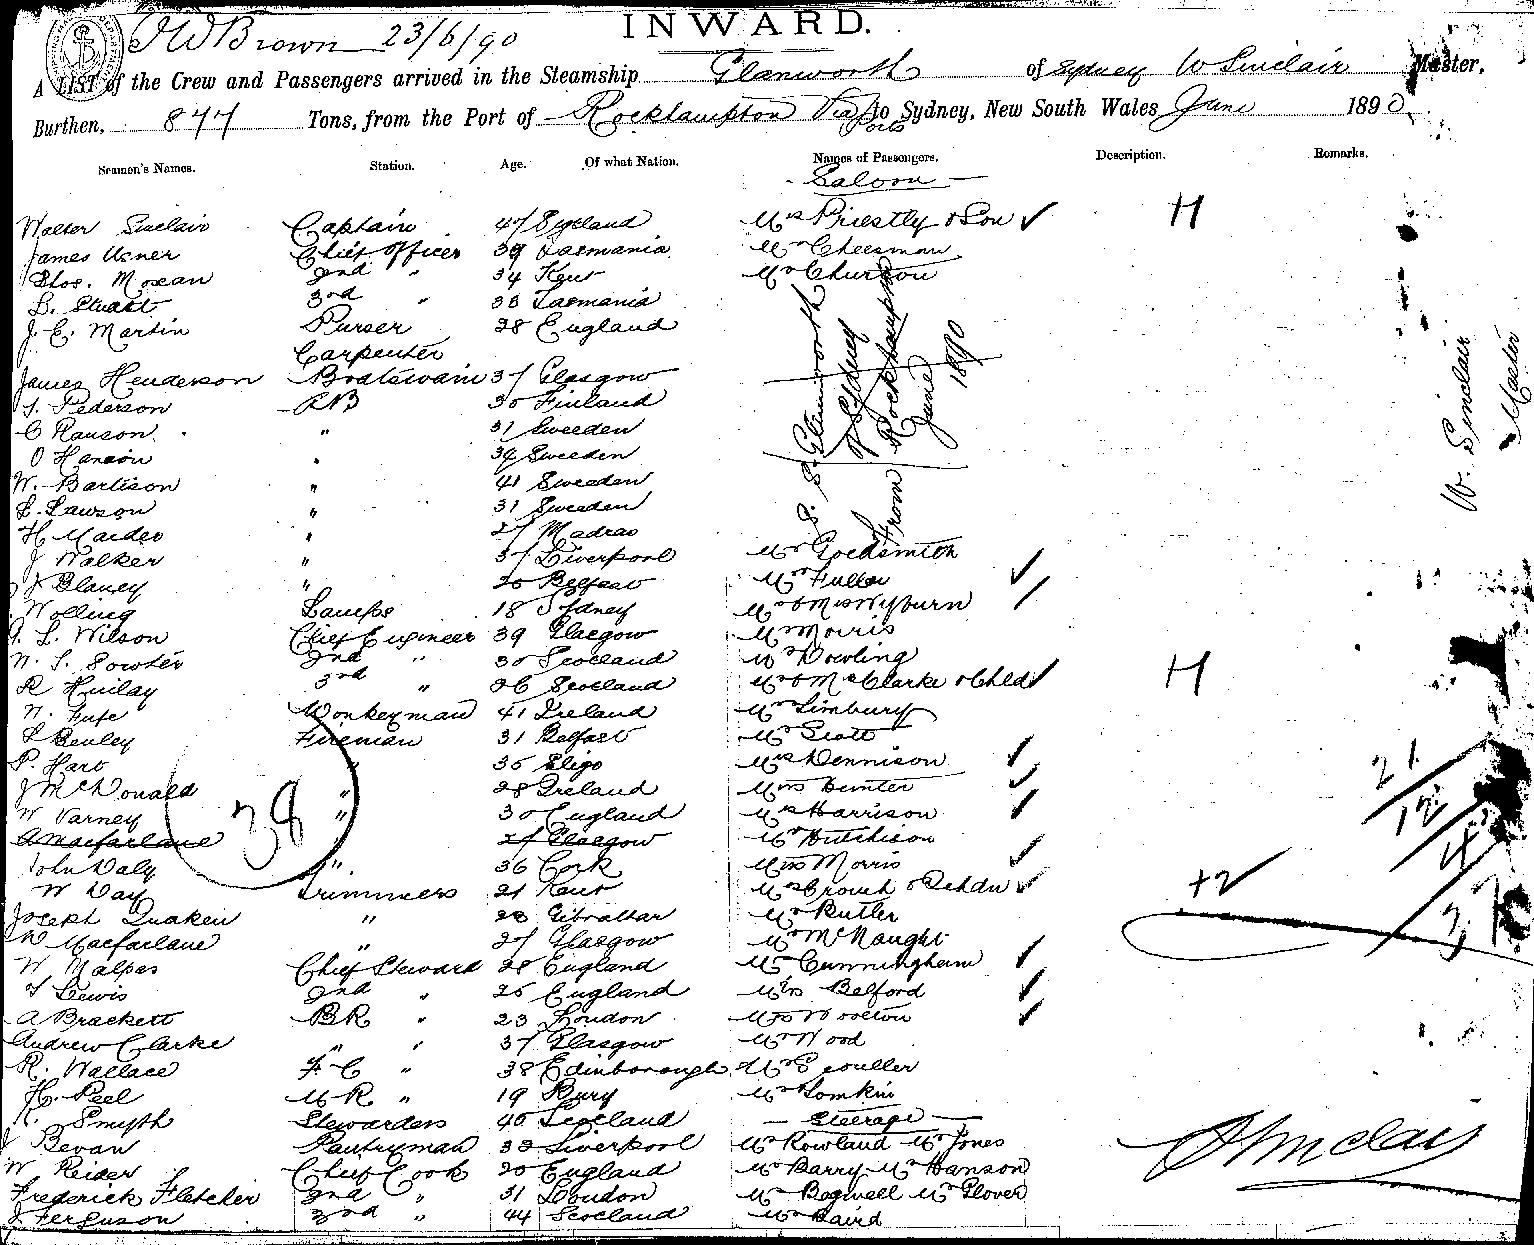 JW Brown 23/6/90
INWARD.
A LIST of the Crew and Passengers arrived in the Steamship Glanworth of Sydney W Sinclair Master,
Burthen, 877 Tons, from the Port of Rockhampton Via Ports to Sydney, New South Wales June 1890
Seamen's Names. Station. Age. Of what Nation. Names of Passengers. Description. Remarks.
Saloon
Walter Sinclair Captain 47 England Mrs Priestly & Son H
James Chief Officer 39 Tasmania Mr Cheesman
Thos. Morean 2nd " 34 Kent Mr Churton
D. Stuart 3rd " 33 Tasmania
J. E. Martin Purser 28 England
Carpenter
James Henderson Boatswain 37 Glasgow
Pederson AB 30 Finland
C Ranson " 31 Sweeden
O Hanson " 34 Sweeden
W. Bartison " 41 Sweeden
L. Lawson " 31 Sweeden
H " 27 Madras
S. S. Glanworth
of Sydney
From Rockhampton
June 1890
W. Sinclair
Master
J Walker " 37 Liverpool Mr Goldsmith
J Blaney " 20 Belfast Mr Fuller
Lamps 18 Sydney Mr & Mrs Wyburn
L. Wilson Chief Engineer 39 Glasgow Mr Morris
Sowter 2nd " 30 Scotland Mr Dowling
R 3rd " 26 Scotland Mr & Mrs Clarke & Child H
Donkeyman 41 Ireland Mr Limbury
Fireman 31 Belfast Mr Scott
P. Hart " 35 Sligo Mrs Dennison
J McDonald " 28 Ireland Mrs Hunter
W Varney " 30 England Mrs Harrison
A Macfarlane 27 Glasgow Mr Hutchison
38
John Daly " 36 Cork Miss Morris
W Day Trimmers 21 Kent Mrs Crouch & +2
Joseph " 28 Gibraltar Mr Butler
W Macfarlane " 27 Glasgow Mr McNaught
W Malpas Chief Steward 28 England Cunningham
Lewis 2nd " 25 England Belford
A Brackett BR " 23 London Woolton
Andrew Clarke " " 37 Glasgow Mr Wood
R. Wallace F C " 38 Edinborough Mr Scouller
H. Peel M R " 19 Bury Mr Tomkin
R. Smyth Stewardess 40 Scotland Steerage
J Bevan Pantryman 33 Liverpool Mr Rowland Mr Jones
W Reider Chief Cook 20 England Mr Barry Mr Hanson
Frederick Fletcher 2nd " 31 London Mr Bagwell Mr Glover
J Ferguson 3rd " 44 Scotland Mr Baird
21
12